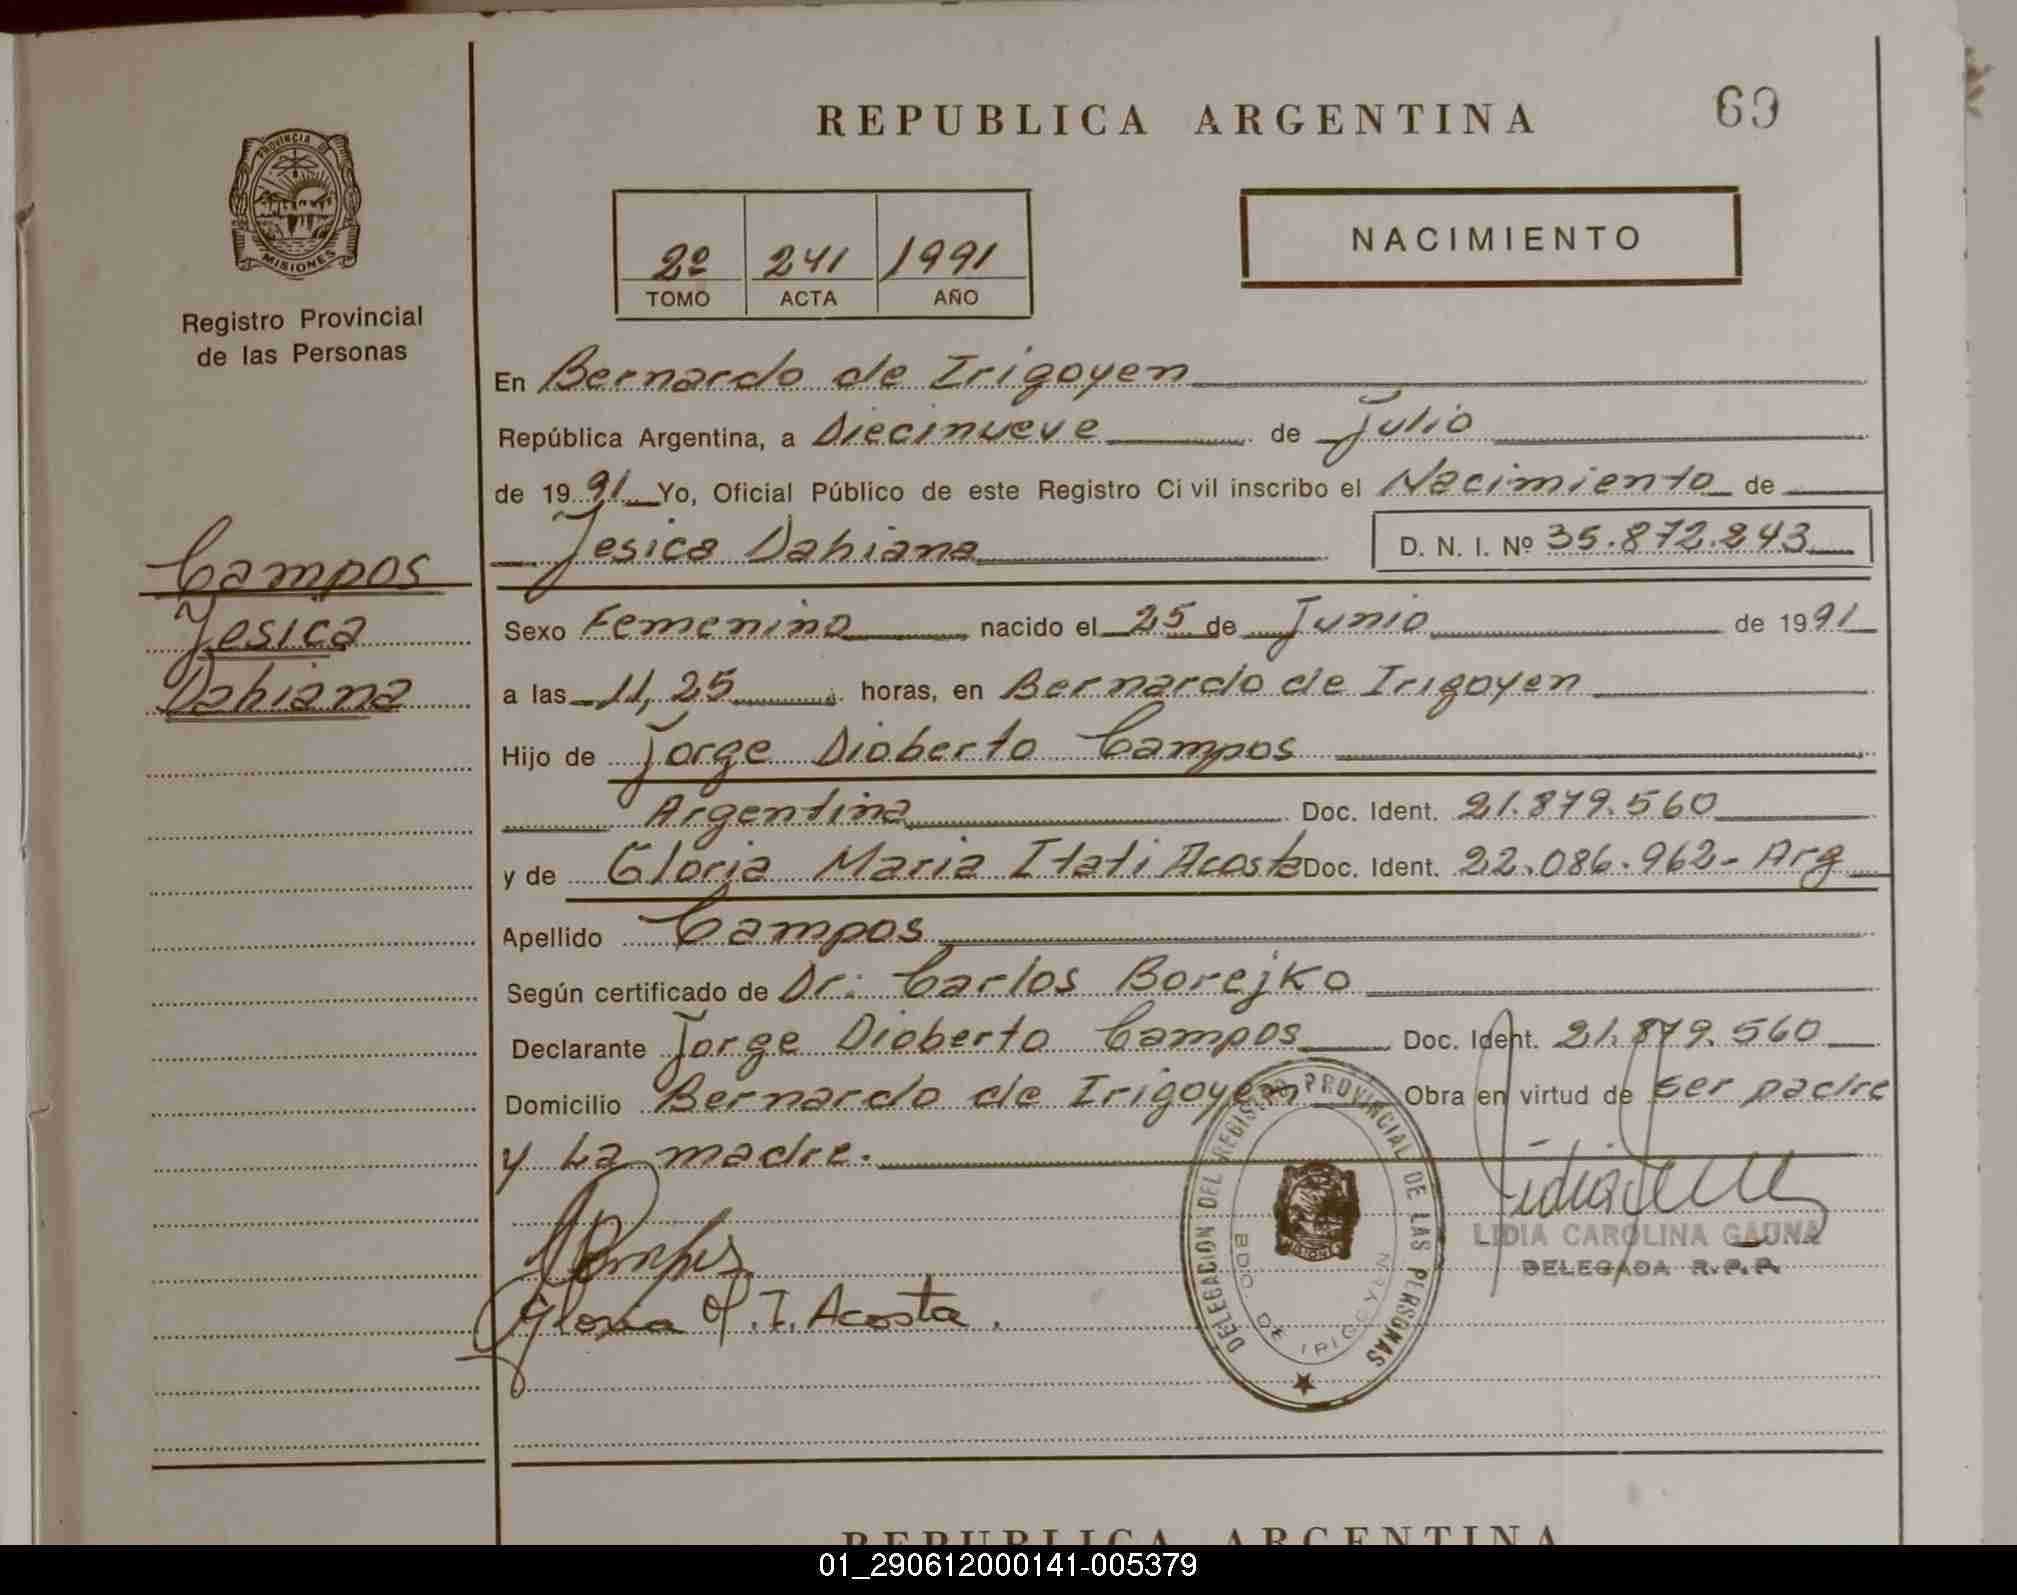 REPUBLICA ARGENTINA
69
PROVINCIA DE
MISIONES
Registro Provincial
de las Personas
2º 241 1991
TOMO ACTA AÑO
NACIMIENTO
En Bernardo de Irigoyen
República Argentina, a Diecinueve de Julio
de 1991 Yo, Oficial Público de este Registro Civil inscribo el Nacimiento de
Jesica Dahiana D. N. I. Nº 35.872.243
Campos
Jesica
Dahiana
Sexo Femenino nacido el 25 de Junio de 1991
a las 11,25 horas, en Bernardo de Irigoyen
Hijo de Jorge Dioberto Campos
Argentina Doc. Ident. 21.879.560
y de Gloria Maria Itati Acosta Doc. Ident. 22.086.962- Arg
Apellido Campos
Según certificado de Dr: Carlos Borejko
Declarante Jorge Dioberto Campos Doc. Ident. 21.879.560
Domicilio Bernardo de Irigoyen Obra en virtud de ser padre
y La madre.
DELEGACION DEL REGISTRO PROVINCIAL DE LAS PERSONAS
BDO. DE IRIGOYEN
MISIONES
LIDIA CAROLINA GAUNA
DELEGADA R.P.P.
Gloria M. I. Acosta.
REPUBLICA ARGENTINA
01_290612000141-005379